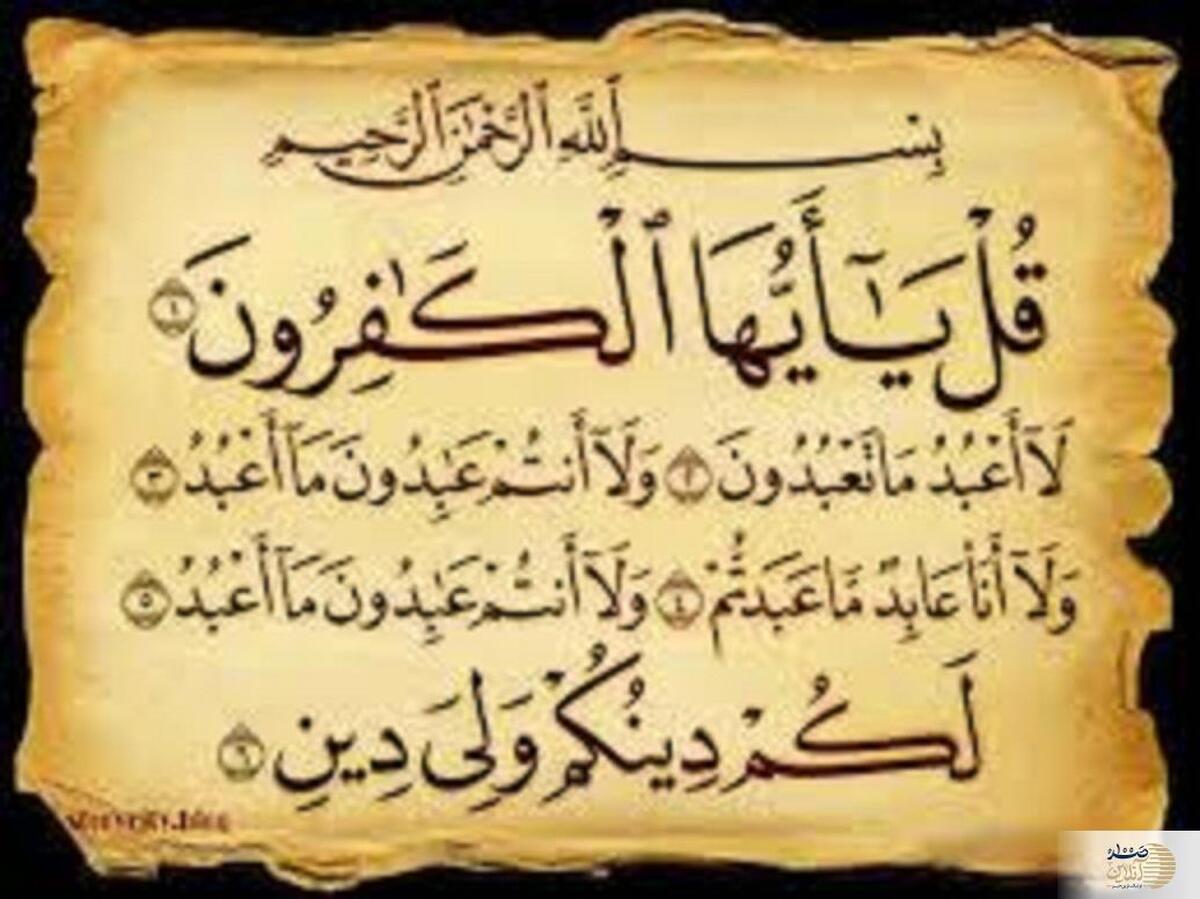 بِسْمِ ٱللَّهِ ٱلرَّحْمَٰنِ ٱلرَّحِيمِ
قُلْ يَـٰٓأَيُّهَا ٱلْكَـٰفِرُونَ ١
لَآ أَعْبُدُ مَا تَعْبُدُونَ ٢ وَلَآ أَنتُمْ عَـٰبِدُونَ مَآ أَعْبُدُ ٣
وَلَآ أَنَا۠ عَابِدٌ مَّا عَبَدتُّمْ ٤ وَلَآ أَنتُمْ عَـٰبِدُونَ مَآ أَعْبُدُ ٥
لَكُمْ دِينُكُمْ وَلِىَ دِينِ ٦
صدا
آنلاین